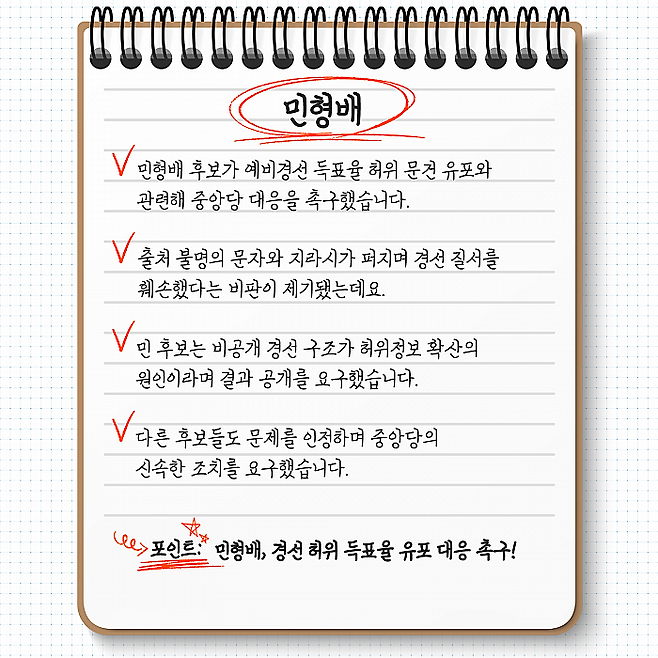 민형배
민형배 후보가 예비경선 득표율 허위 문건 유포와
관련해 중앙당 대응을 촉구했습니다.
출처 불명의 문자와 지라시가 퍼지며 경선 질서를
훼손했다는 비판이 제기됐는데요.
민 후보는 비공개 경선 구조가 허위정보 확산의
원인이라며 결과 공개를 요구했습니다.
다른 후보들도 문제를 인정하며 중앙당의
신속한 조치를 요구했습니다.
포인트: 민형배, 경선 허위 득표율 유포 대응 촉구!